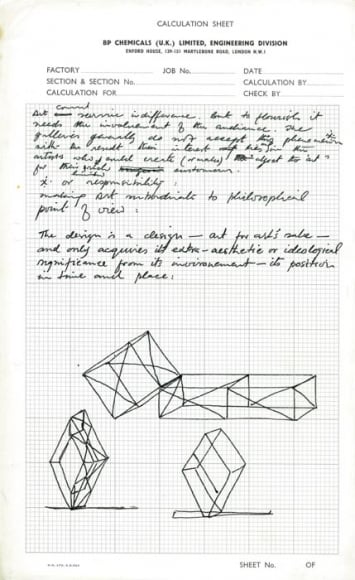 CALCULATION SHEET
BP CHEMICALS (U.K.) LIMITED, ENGINEERING DIVISION
DEVONSHIRE HOUSE, MARYLEBONE ROAD, LONDON N.W.1
FACTORY JOB No. DATE
SECTION & SECTION No. CALCULATION BY
CALCULATION FOR CHECK BY
cannot
Art survive indifference but to flourish it
needs the involvement of the audience. The
galleries generally do not accept this phenomenon x
with the result their interest lies in the
artists who could create (or make) object
for their customers.
limited
x. or responsibility:
making art subordinate to philosophical
point of view:
The design is a design — art for art's sake —
and only acquires its extra-aesthetic or ideological
significance from its environment — its position
in time and place:
SHEET No. OF